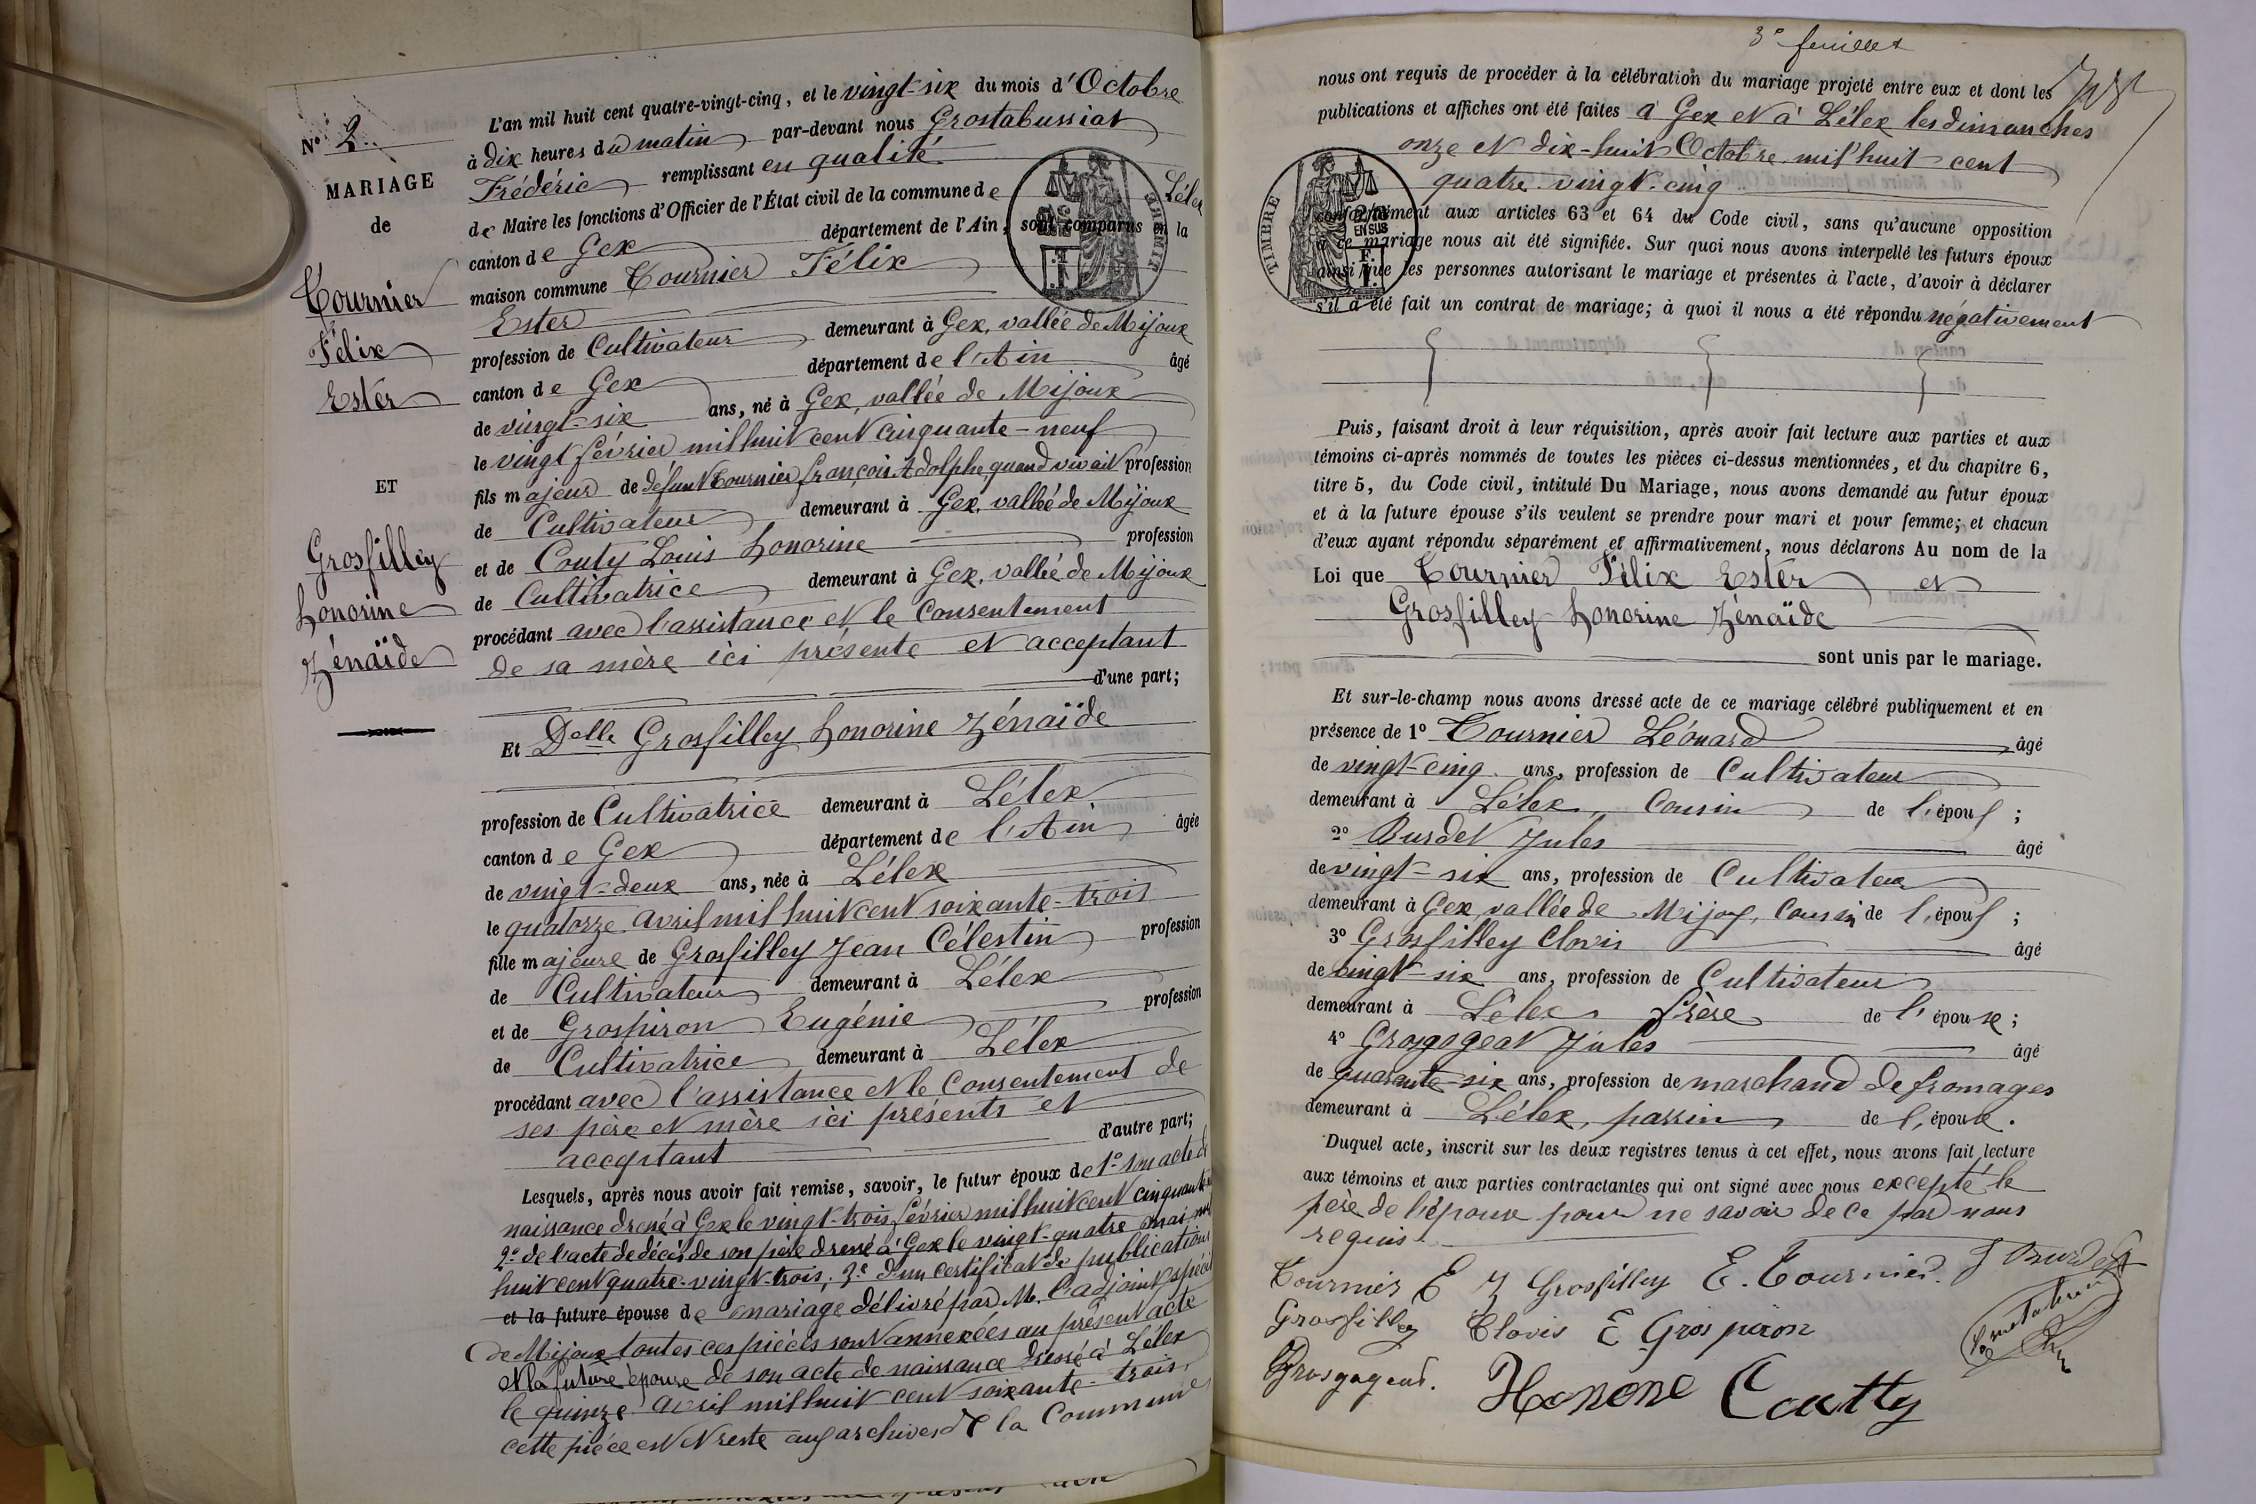 N° 2.
MARIAGE
de
Tournier
Félix
Ester
ET
Grosfilley
Honorine
Zénaïde
L'an mil huit cent quatre-vingt-cinq, et le vingt-six du mois d'Octobre
à dix heures du matin par-devant nous Grostabussiat
Frédéric remplissant en qualité
de Maire les fonctions d'Officier de l'État civil de la commune de Lélex
canton de Gex département de l'Ain, sont comparus en la
maison commune Tournier Félix
Ester
profession de Cultivateur demeurant à Gex, vallée de Mijoux
canton de Gex département de l'Ain âgé
de vingt-six ans, né à Gex, vallée de Mijoux
le vingt février mil huit cent cinquante-neuf
fils majeur de défunt Tournier françois Adolphe, quand vivait profession
de Cultivateur demeurant à Gex, vallée de Mijoux
et de Couty Louis Honorine profession
de Cultivatrice demeurant à Gex, vallée de Mijoux
procédant avec l'assistance et le Consentement
de sa mère ici présente et acceptant
d'une part;
Et Delle Grosfilley Honorine Zénaïde
profession de Cultivatrice demeurant à Lélex
canton de Gex département de l'Ain âgée
de vingt-deux ans, née à Lélex
le quatorze avril mil huit cent soixante-trois
fille majeure de Grosfilley Jean Célestin profession
de Cultivateur demeurant à Lélex
et de Grospiron Eugénie profession
de Cultivatrice demeurant à Lélex
procédant avec l'assistance et le Consentement de
ses père et mère ici présents et
acceptant d'autre part;
Lesquels, après nous avoir fait remise, savoir, le futur époux de 1° son acte de
naissance dressé à Gex le vingt-trois février mil huit cent cinquante
2° de l'acte de décès de son père dressé à Gex le vingt-quatre mai mil
huit cent quatre-vingt-trois; 3° d'un certificat de publications
et la future épouse de mariage délivré par M. l'adjoint spécial
de Mijoux toutes ces pièces sont annexées au présent acte
et la future épouse de son acte de naissance dressé à Lélex
le quinze avril mil huit cent soixante-trois,
cette pièce est et reste aux archives de la Commune
3e feuillet
nous ont requis de procéder à la célébration du mariage projeté entre eux et dont les
publications et affiches ont été faites à Gex et à Lélex les dimanches
onze et dix-huit Octobre mil huit cent
quatre-vingt-cinq
TIMBRE
conformément aux articles 63 et 64 du Code civil, sans qu'aucune opposition
à ce mariage nous ait été signifiée. Sur quoi nous avons interpellé les futurs époux
ainsi que les personnes autorisant le mariage et présentes à l'acte, d'avoir à déclarer
s'il a été fait un contrat de mariage; à quoi il nous a été répondu négativement
Puis, faisant droit à leur réquisition, après avoir fait lecture aux parties et aux
témoins ci-après nommés de toutes les pièces ci-dessus mentionnées, et du chapitre 6,
titre 5, du Code civil, intitulé Du Mariage, nous avons demandé au futur époux
et à la future épouse s'ils veulent se prendre pour mari et pour femme; et chacun
d'eux ayant répondu séparément et affirmativement, nous déclarons Au nom de la
Loi que Tournier Félix Ester et
Grosfilley Honorine Zénaïde
sont unis par le mariage.
Et sur-le-champ nous avons dressé acte de ce mariage célébré publiquement et en
présence de 1° Tournier Léonard âgé
de vingt-cinq ans, profession de Cultivateur
demeurant à Lélex, Cousin de l'époux;
2° Burdet Jules âgé
de vingt-six ans, profession de Cultivateur
demeurant à Gex, vallée de Mijoux, Cousin de l'époux;
3° Grosfilley Clovis âgé
de vingt-six ans, profession de Cultivateur
demeurant à Lélex, frère de l'épouse;
4° Grosgogeat Jules âgé
de quarante-six ans, profession de marchand de fromages
demeurant à Lélex, parrin de l'épouse.
Duquel acte, inscrit sur les deux registres tenus à cet effet, nous avons fait lecture
aux témoins et aux parties contractantes qui ont signé avec nous excepté le
père de l'épouse pour ne savoir de ce par nous
requis.
Tournier E Z Grosfilley E. Tournier. J Burdet
Grosfilley Clovis E Grospiron
Grosgogeat. Honorine Coutty